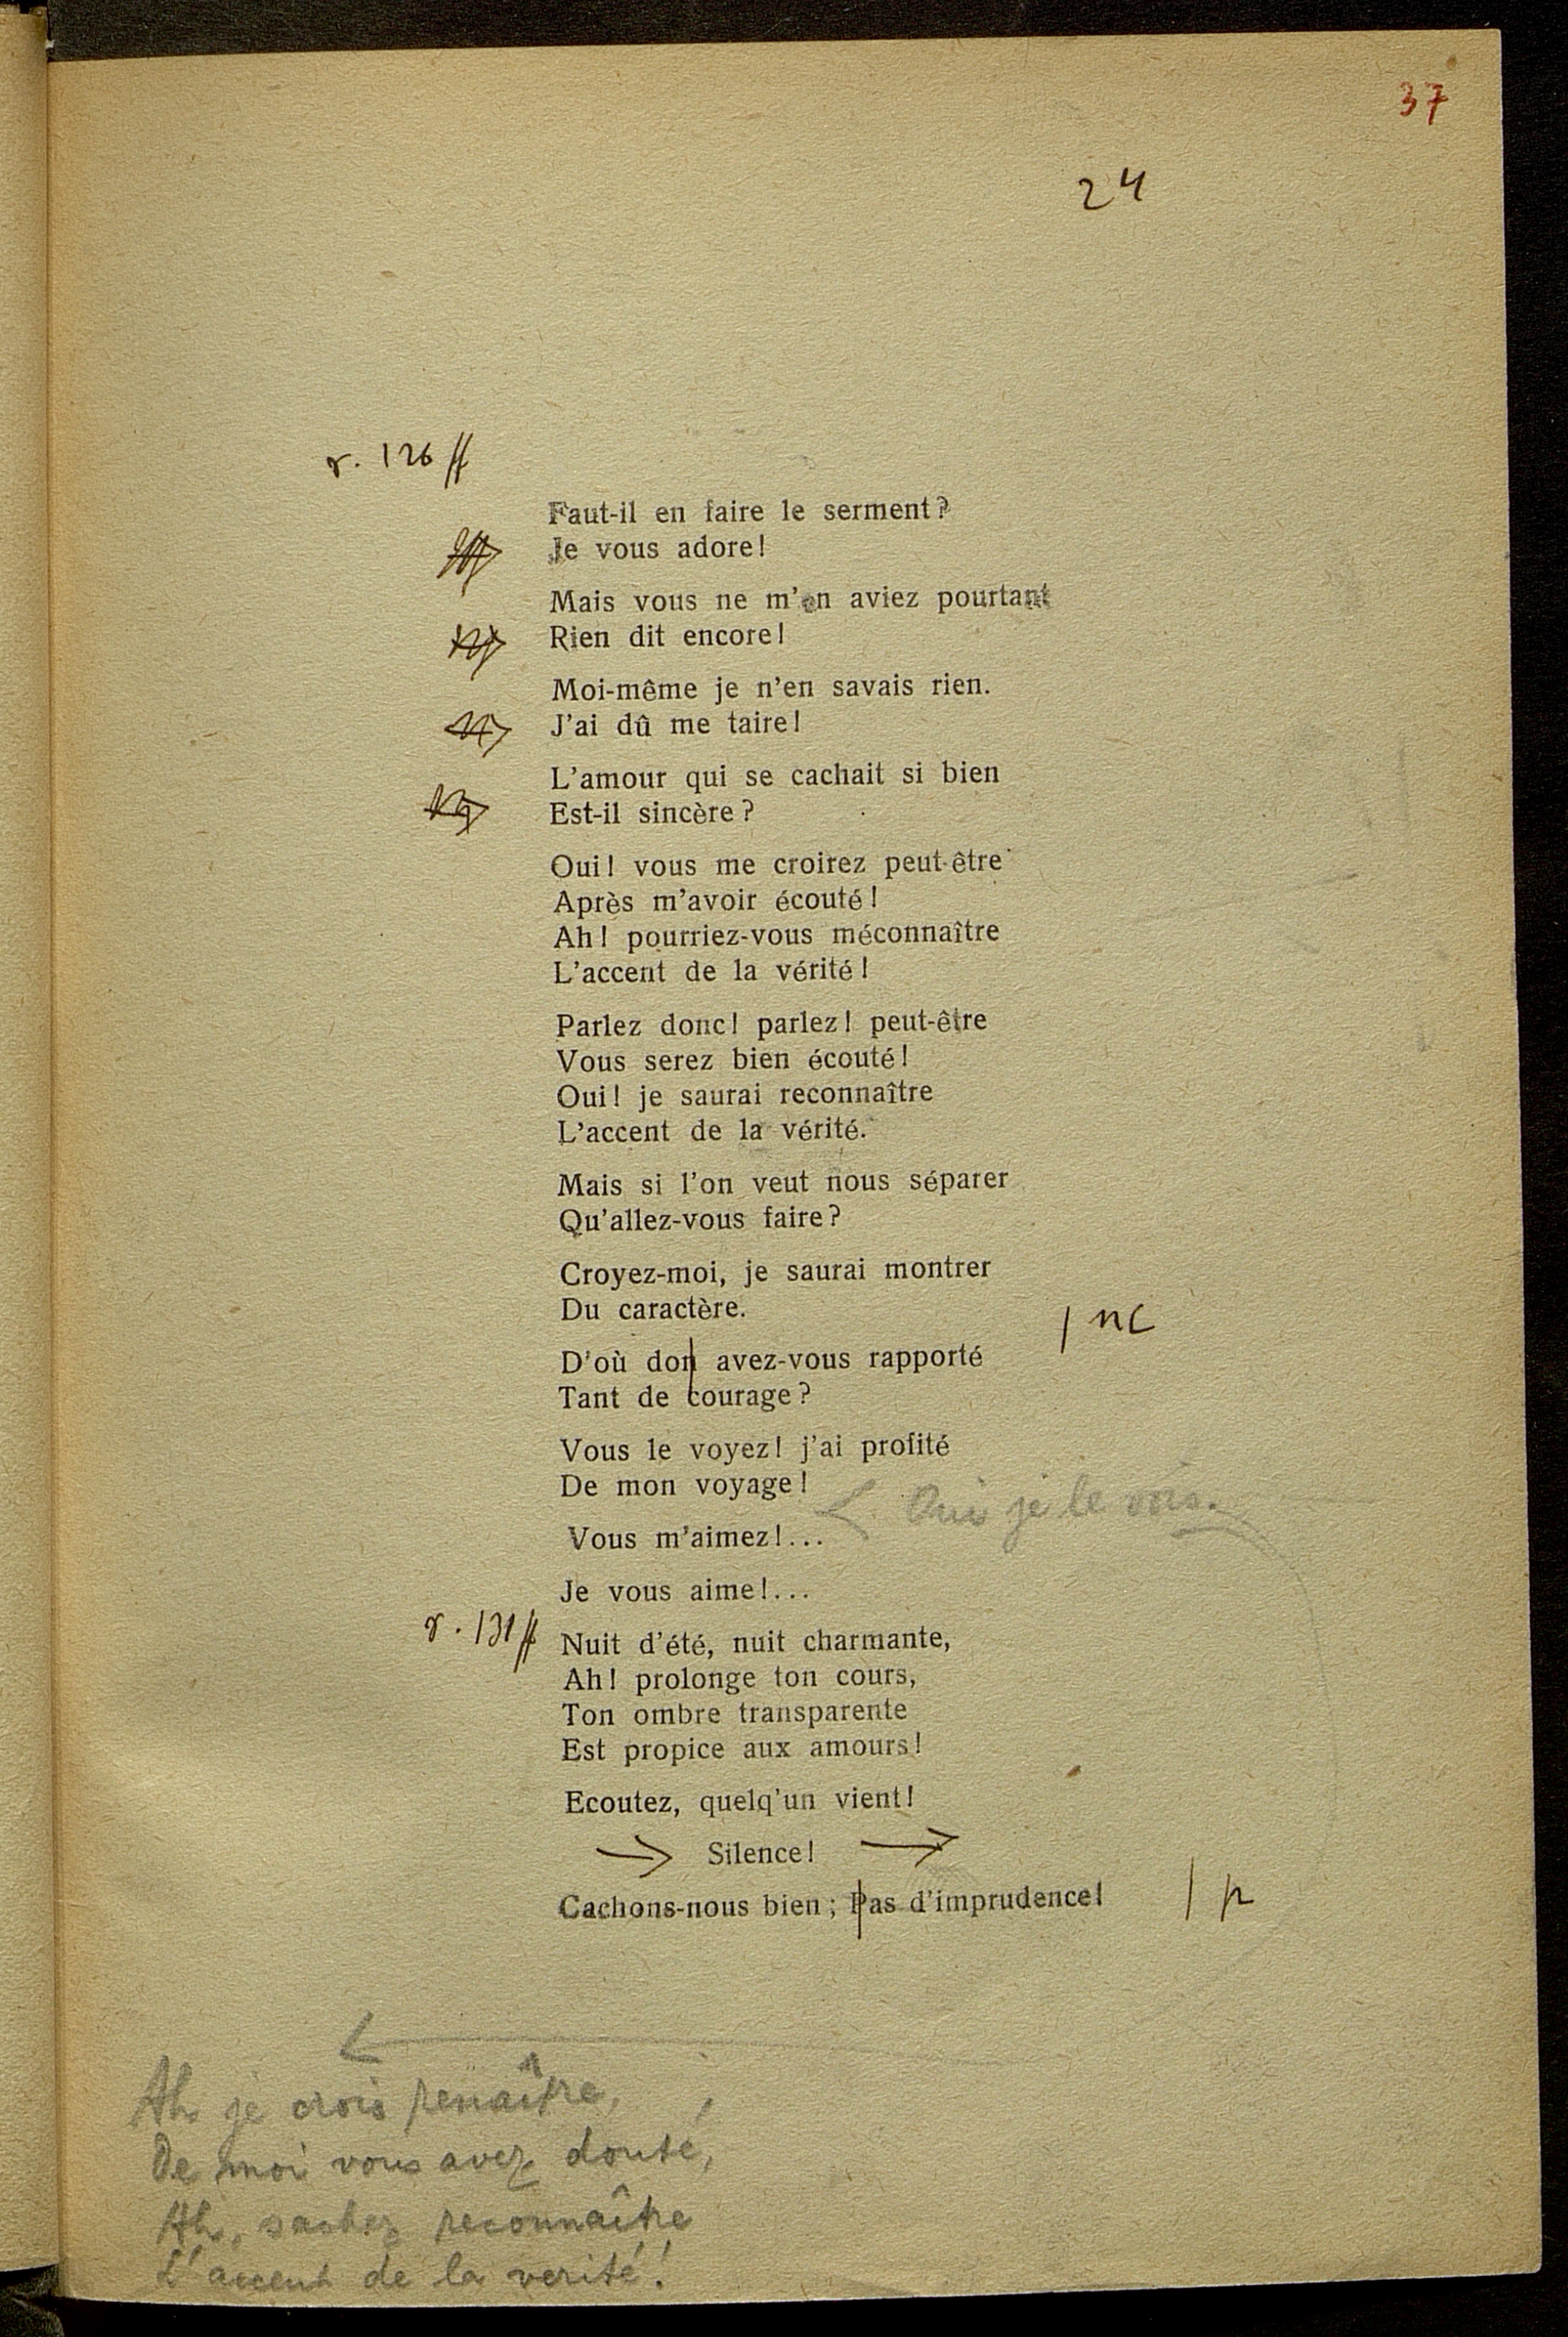 37
24
r. 126 ff
Faut-il en faire le serment?
Je vous adore!
Mais vous ne m'en aviez pourtant
Rien dit encore!
Moi-même je n'en savais rien.
J'ai dû me taire!
L'amour qui se cachait si bien
Est-il sincère?
Oui! vous me croirez peut-être
Après m'avoir écouté!
Ah! pourriez-vous méconnaître
L'accent de la vérité!
Parlez donc! parlez! peut-être
Vous serez bien écouté!
Oui! je saurai reconnaître
L'accent de la vérité.
Mais si l'on veut nous séparer
Qu'allez-vous faire?
Croyez-moi, je saurai montrer
Du caractère.
| nc
D'où don avez-vous rapporté
Tant de courage?
Vous le voyez! j'ai profité
De mon voyage!
Oui je le vois.
Vous m'aimez!...
Je vous aime!...
r. 131 ff
Nuit d'été, nuit charmante,
Ah! prolonge ton cours,
Ton ombre transparente
Est propice aux amours!
Ecoutez, quelq'un vient!
→ Silence! →
Cachons-nous bien; Pas d'imprudence! | p
Ah je crois renaître,
De moi vous avez douté,
Ah, sachez reconnaître
L'accent de la verité!